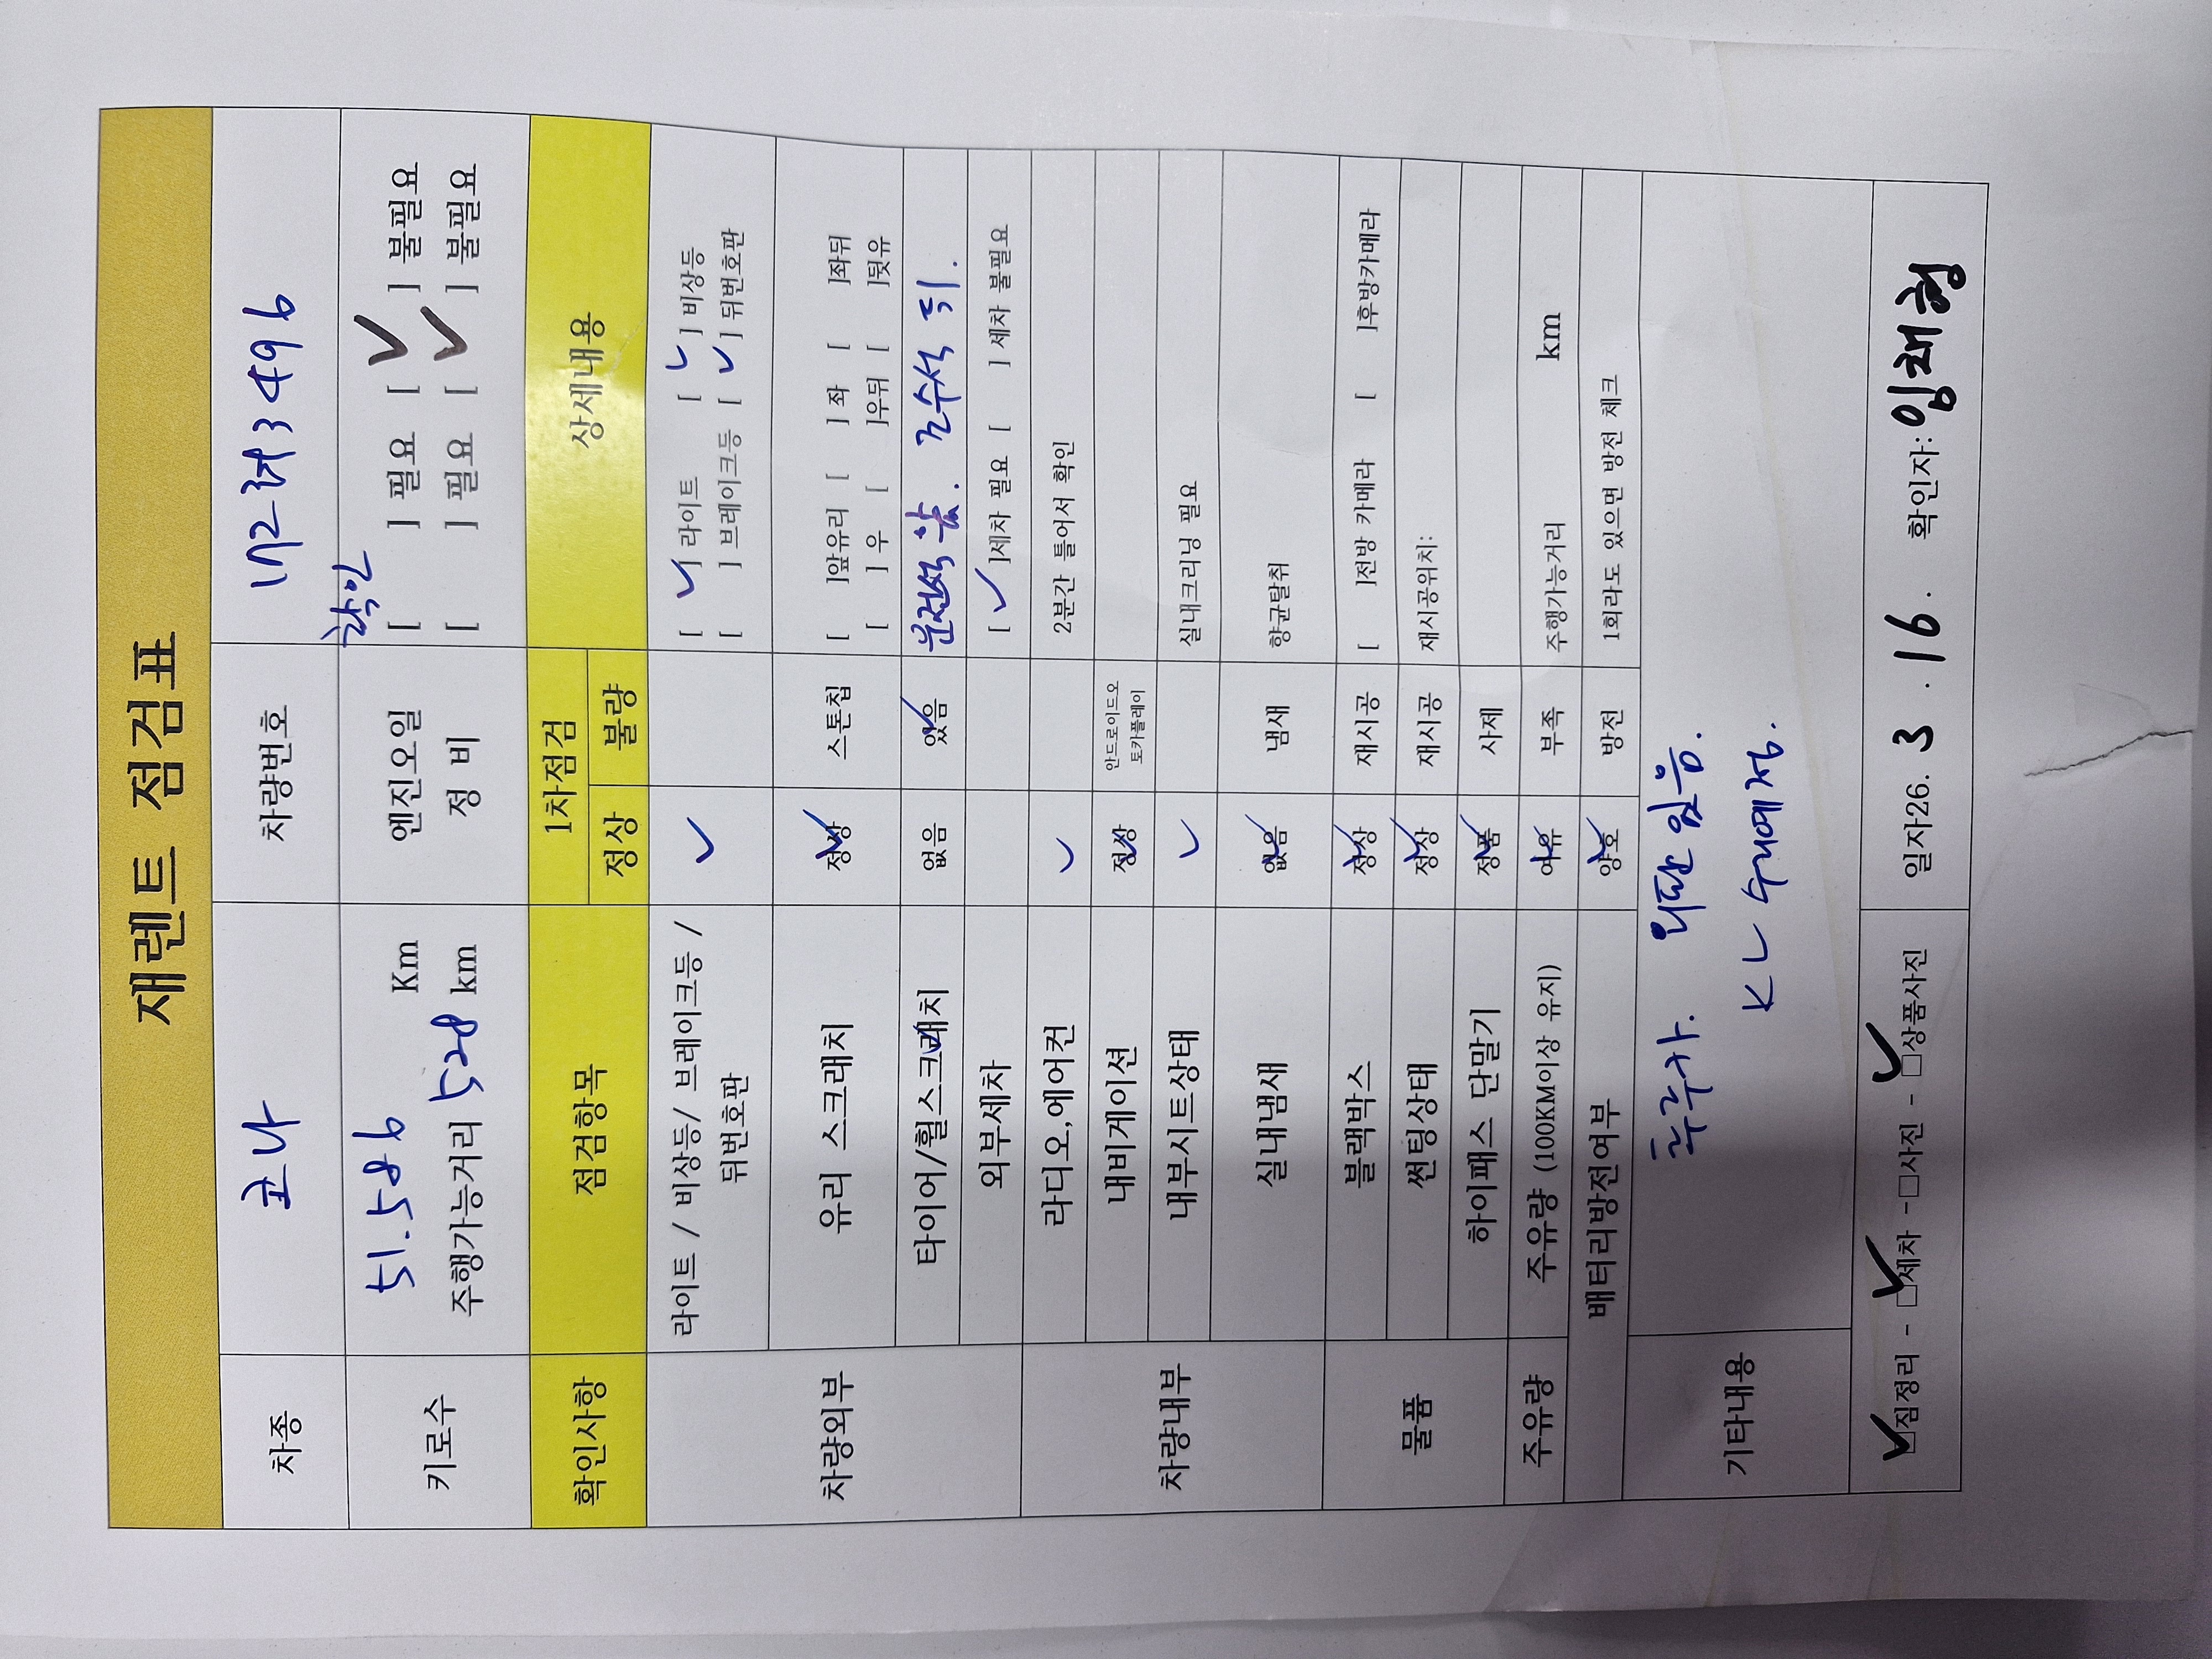 재렌트 점검표
차종 코나 차량번호 172허3496
키로수 51.586 Km 엔진오일 확인 [ ] 필요 [ ✓ ] 불필요
주행가능거리 528 km 정 비 [ ] 필요 [ ✓ ] 불필요
확인사항 점검항목 1차점검 상세내용
정상 불량
차량외부 라이트 / 비상등/ 브레이크등 / 뒤번호판 ✓ [ ✓ ] 라이트 [ ✓ ] 비상등
[ ] 브레이크등 [ ✓ ] 뒤번호판
유리 스크래치 정상 ✓ 스톤칩 [ ]앞유리 [ ] 좌 [ ]좌뒤
[ ] 우 [ ]우뒤 [ ]뒷유
타이어/휠스크래치 ✓ 없음 있음 ✓ 운전석 앞. 조수석 뒤.
외부세차 [ ✓ ]세차 필요 [ ] 세차 불필요
차량내부 라디오,에어컨 ✓ 2분간 틀어서 확인
내비게이션 정상 ✓ 안드로이드오토카플레이
내부시트상태 ✓ 실내크리닝 필요
실내냄새 없음 ✓ 냄새 향균탈취
물품 블랙박스 정상 ✓ 재시공 [ ]전방 카메라 [ ]후방카메라
썬팅상태 정상 ✓ 재시공 재시공위치:
하이패스 단말기 정품 ✓ 사제
주유량 주유량 (100KM이상 유지) 여유 ✓ 부족 주행가능거리 km
배터리방전여부 양호 ✓ 방전 1회라도 있으면 방전 체크
기타내용 외판 있음.
수리예정.
☑짐정리 - ☑세차 - □사진 - ☑상품사진 일자26. 3 . 16 . 확인자: 임채형